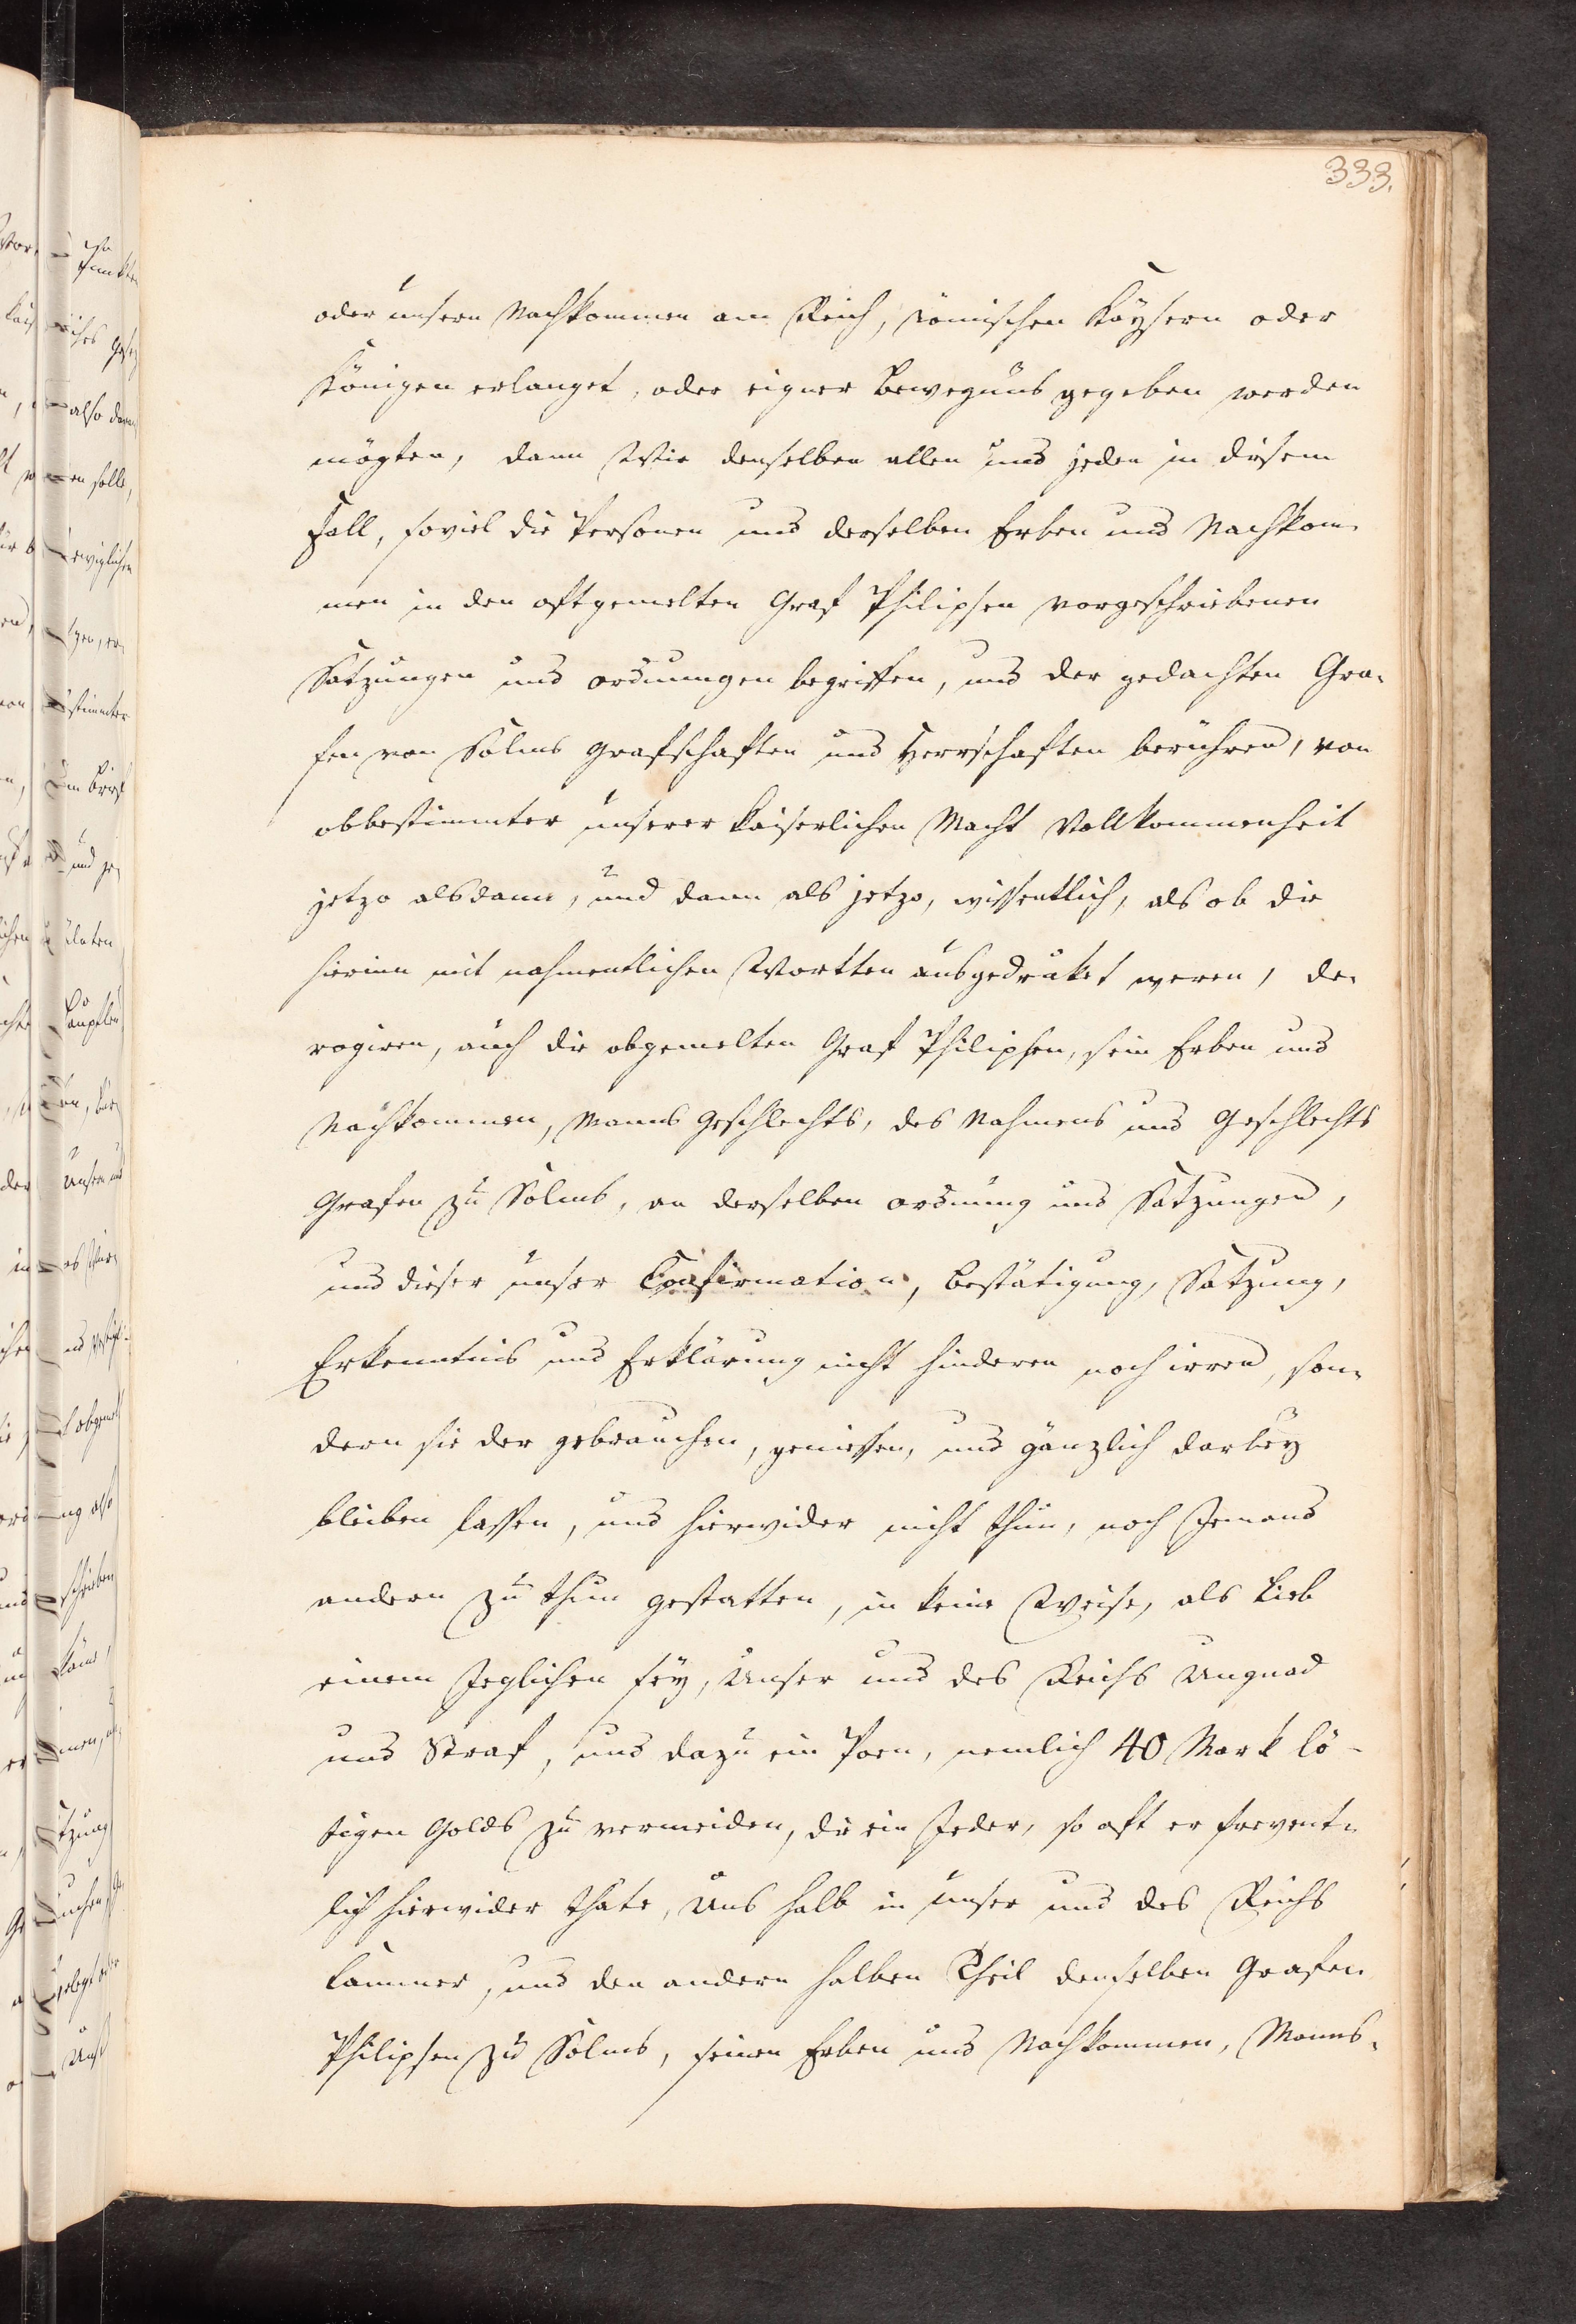 333.
oder unsern Nachkommen am Reich, Römischen Kaÿsern oder
Königen erlanget, oder eigner Bewegnus gegeben werden
mögten, dann Wir denselben allen und jeden in disem
Fall, soviel die Personen und derselben Erben und Nachkom-
men in den oftgemelten Graf Philipsen vorgeschriebenen
Satzungen und ordnungen begriffen, und der gedachten Gra-
fen von Solms Grafschaften und Herrschaften berühren, von
obbestimmter unserer kaiserlichen Macht Vollkommenheit
jetzo alsdann, und dann als jetzo, wissentlich, als ob die
hierinn mit nahmentlichen Wortten ausgedruket weren, de-
rogiren, auch die obgemelten Graf Philipsen, sein Erben und
Nachkommen, Manns Geschlechts, des Nahmens und Geschlechts
Grafen zu Solms, an derselben ordnung und Satzungen,
und dieser unser Confirmation, Bestätigung, Satzung,
Erkenntnis und Erklärung nicht hinderen noch irren, son-
dern sie der gebrauchen, geniessen, und gänzlich darbeÿ
bleiben lassen, und hierwider nicht thun, noch Jemand
andern zu thun gestatten, in keine Weise, als Lieb
einem Jeglichen seÿ, Unser und des Reichs Ungnad
und Straf, und dazu ein Poen, nemlich 40 Mark lö-
tigen Golds zu vermeiden, die ein Jeder, so oft er frevent-
lich hierwider thäte, Uns halb in unser und des Reichs
Cammer, und den andern halben Theil denselben Grafen
Philipsen zu Solms, seinen Erben und Nachkommen, Manns-